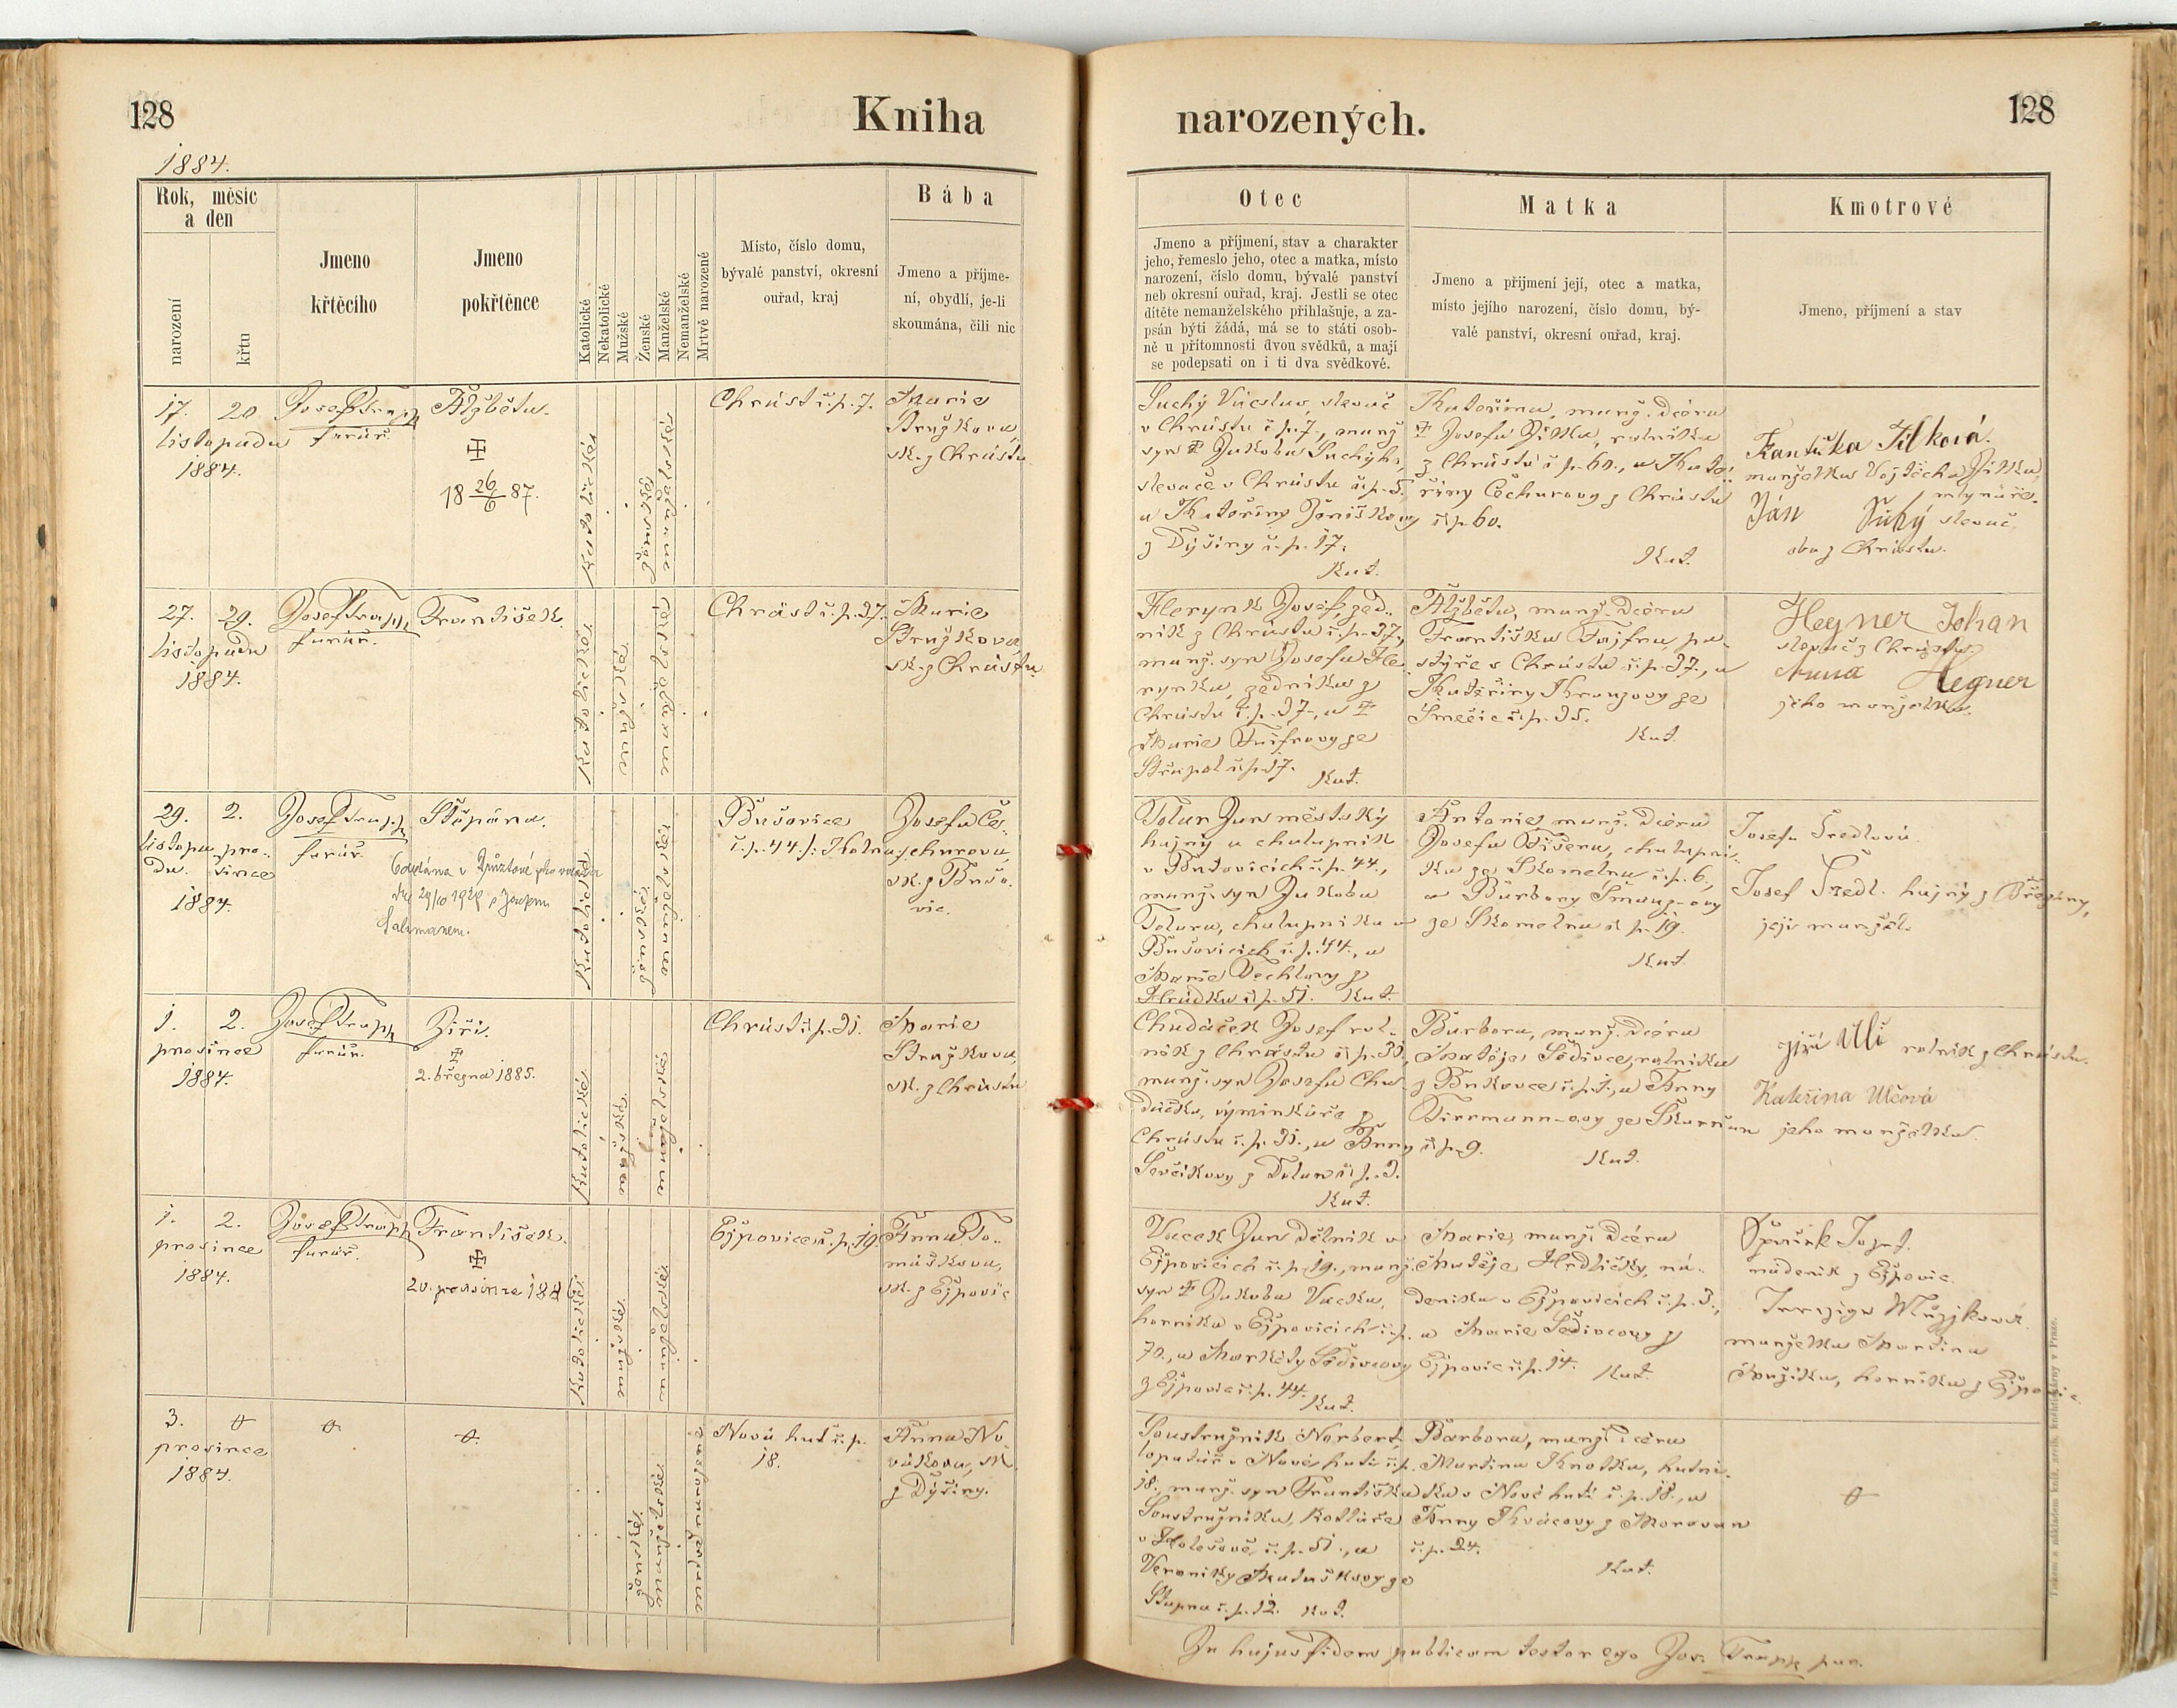 128
Kniha
narozených.
128
1884.
Rok, měsíc
a den
narození
křtu
Jmeno
křtěcího
Jmeno
pokřtěnce
Katolické
Nekatolické
Mužské
Ženské
Manželské
Nemanželské
Mrtvě narozené
Místo, číslo domu,
bývalé panství, okresní
ouřad, kraj
Bába
Jmeno a příjme-
ní, obydlí, je-li
skoumána, čili nic
Otec
Jmeno a příjmení, stav a charakter
jeho, řemeslo jeho, otec a matka, místo
narození, číslo domu, bývalé panství
neb okresní ouřad, kraj. Jestli se otec
dítěte nemanželského přihlašuje, a za-
psán býti žádá, má se to státi osob-
ně u přítomnosti dvou svědků, a mají
se podepsati on i ti dva svědkové.
Matka
Jmeno a přijmení její, otec a matka,
místo jejího narození, číslo domu, bý-
valé panství, okresní ouřad, kraj.
Kmotrové
Jmeno, příjmení a stav
17. 20.
listopadu
1884.
Josef Trapp
farář.
Alžběta.
18 26/6 87.
katolické
ženské
manželské
Chrást č. p. 7.
Marie
Stružkova,
sk. z Chrástu
Suchý Václav, slevač
v Chrástu č. p. 7., manž.
syn † Jakoba Suchýho,
slevače v Chrástu č. p. 5.
a Kateřiny
z Dýšiny č. p. 17.
Kat.
Kateřina, manž. dcera
† Josefa Jílka, rolníka
z Chrástu č. p. 60., a Kate-
řiny Čechurovy z Chrástu
č. p. 60.
Kat.
Jílková.
manželka Vojtěcha Jílka,
mlynáře.
Ján Suchý slevač,
oba z Chrástu.
27. 29.
listopadu
1884.
Josef Trapp
farář.
František.
katolické
mužské
manželské
Chrást č. p. 37.
Marie
Stružkova,
sk. z Chrástu.
Flerynk Josef, zed-
ník z Chrástu č. p. 37.,
manž. syn Josefa Fle-
rynka, zedníka z
Chrástu č. p. 37., a †
Marie
č. p. 37. Kat.
Alžběta, manž. dcera
Františka Fajfra, pa-
stýře v Chrástu č. p. 37., a
Kateřiny
Smědčic č. p. 35.
Kat.
Hegner Johan
slevač z Chrástu
Anna Hegner
jeho manželka.
29. 2.
listopa- pro-
du. since
1884.
Josef Trapp
farář.
Štěpána.
Oddána v
dne 29/10 1929 s Josefem
Salzmanem.
katolické
ženské
manželské
Bušovice
č. p. 44.
Josefa Če-
churova,
sk. z Bušo-
vic.
Tolar Jan městský
hajný a chalupník
v Bušovicích č. p. 44.,
manž. syn Jakoba
Tolara, chalupníka v
Bušovicích č. p. 44., a
Marie Vechtovy z
Hrádku č. p. 51. Kat.
Antonie, manž. dcera
Josefa Fišera, chalupní-
ka ze Skomelna č. p. 6.,
a Barbory
ze Skomelna č. p. 19.
Kat.
Josefa Šredlová
Josef Šredl. hajný z Březiny,
její manžel.
1. 2.
prosince
1884.
Josef Trapp
farář.
Jiří.
†
2. března 1885.
katolické
mužské
manželské
Chrást č. p. 31.
Marie
Stružkova,
sk. z Chrástu
Chudáček Josef rol-
ník z Chrástu č. p. 31.,
manž. syn Josefa Chu-
dáčka, výminkáře z
Chrástu č. p. 31., a Anny
Ševčíkovy z č. p. 3.
Kat.
Barbora, manž. dcera
Matěje Sedivce, rolníka
z Bukovce č. p. 1., a Anny
ze
č. p. 9.
Kat.
Jiří Ulč rolník z Chrástu.
Kateřina Ulčová
jeho manželka.
1. 2.
prosince
1884.
Josef Trapp
farář.
František.
20. prosince 1886
katolické
mužské
manželské
Ejpovice č. p. 19.
Anna To-
máškova,
sk. z Ejpovic
Vacek Jan dělník v
Ejpovicích č. p. 19., manž.
syn † Jakoba Vacka,
horníka v Ejpovicích č. p.
70., a Markéty Sedivcovy
z Ejpovic č. p. 44.
Kat.
Marie, manž. dcera
Matěje Hrdličky, ná-
deníka v Ejpovicích č. p. 3.,
a Marie Sedivcovy z
Ejpovic č. p. 14. Kat.
Josef.
nádeník z Ejpovic.
manželka Martina
horníka z Ejpovic.
3.
prosince
1884.
ženské
manželské
mrtvě narozené
Nová huť č. p.
18.
Anna No-
vákova, sk.
z Dýšiny.
Soustružník Norbert,
lopatář v Nové huti č. p.
18., manž. syn Františka
Soustružníka, kotláře
v Holešově č. p. 51., a
Veroniky Matuškovy ze
Stupna č. p. 12. Kat.
Barbora, manž. dcera
Martina Knotka, hutní-
ka v Nové huti č. p. 18., a
Anny z Moravan
č. p. 24.
Kat.
In hujus fidem publicam testor ego Jos. Trapp par.
Tiskem a nákladem knih. právn. knihtiskárny v Praze.